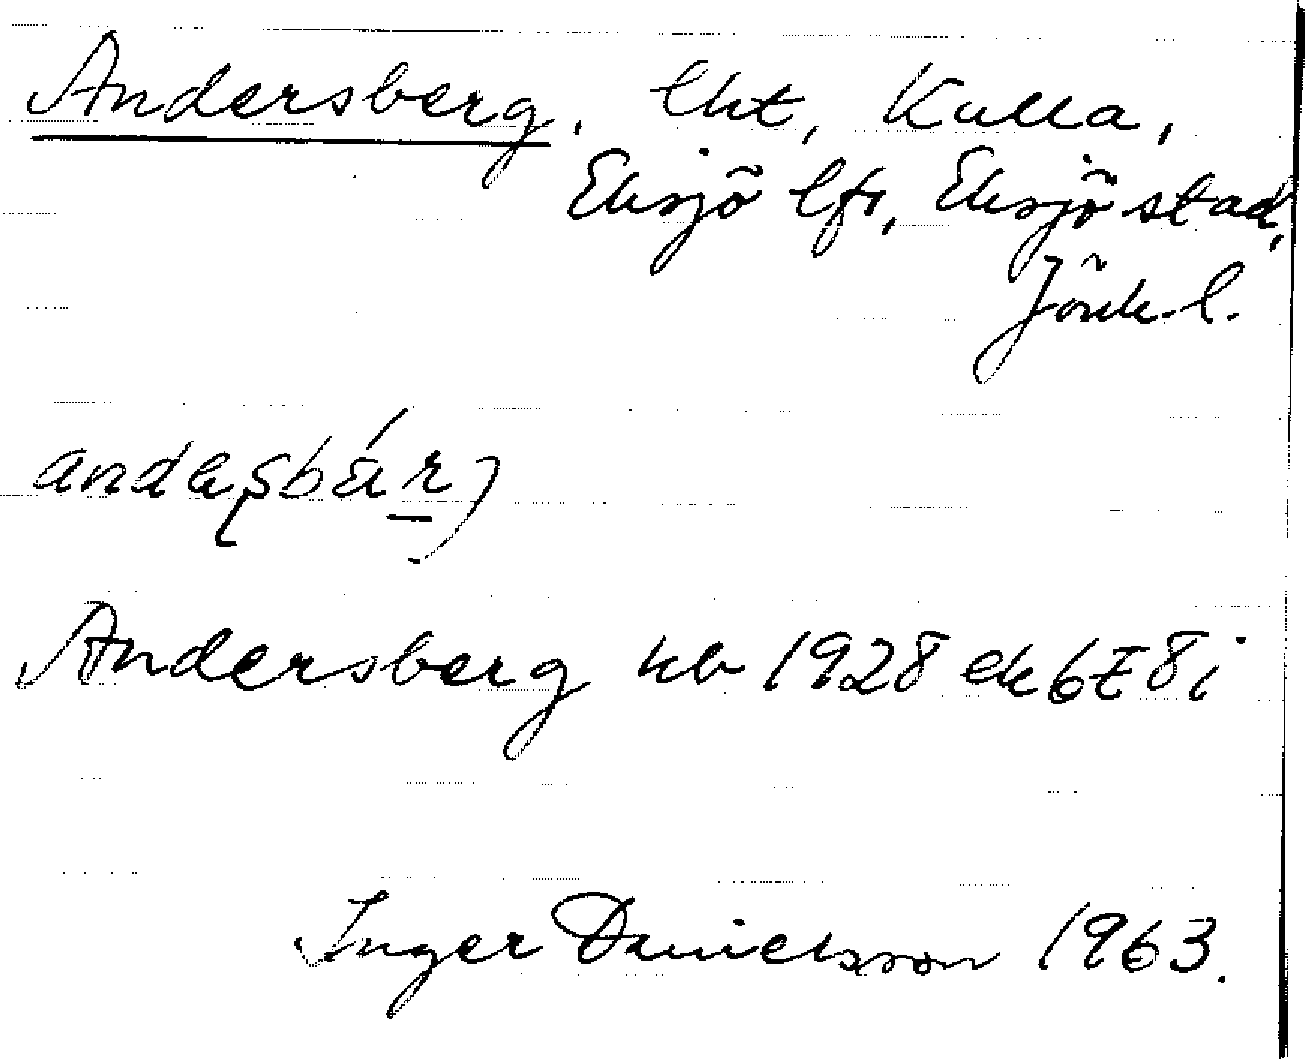 Andersberg, lht, Kulla,
Eksjö lfs, Eksjö stad,
Jönk. l.
Andersberg kb 1928 ek 6E8i
Inger Danielsson 1963.